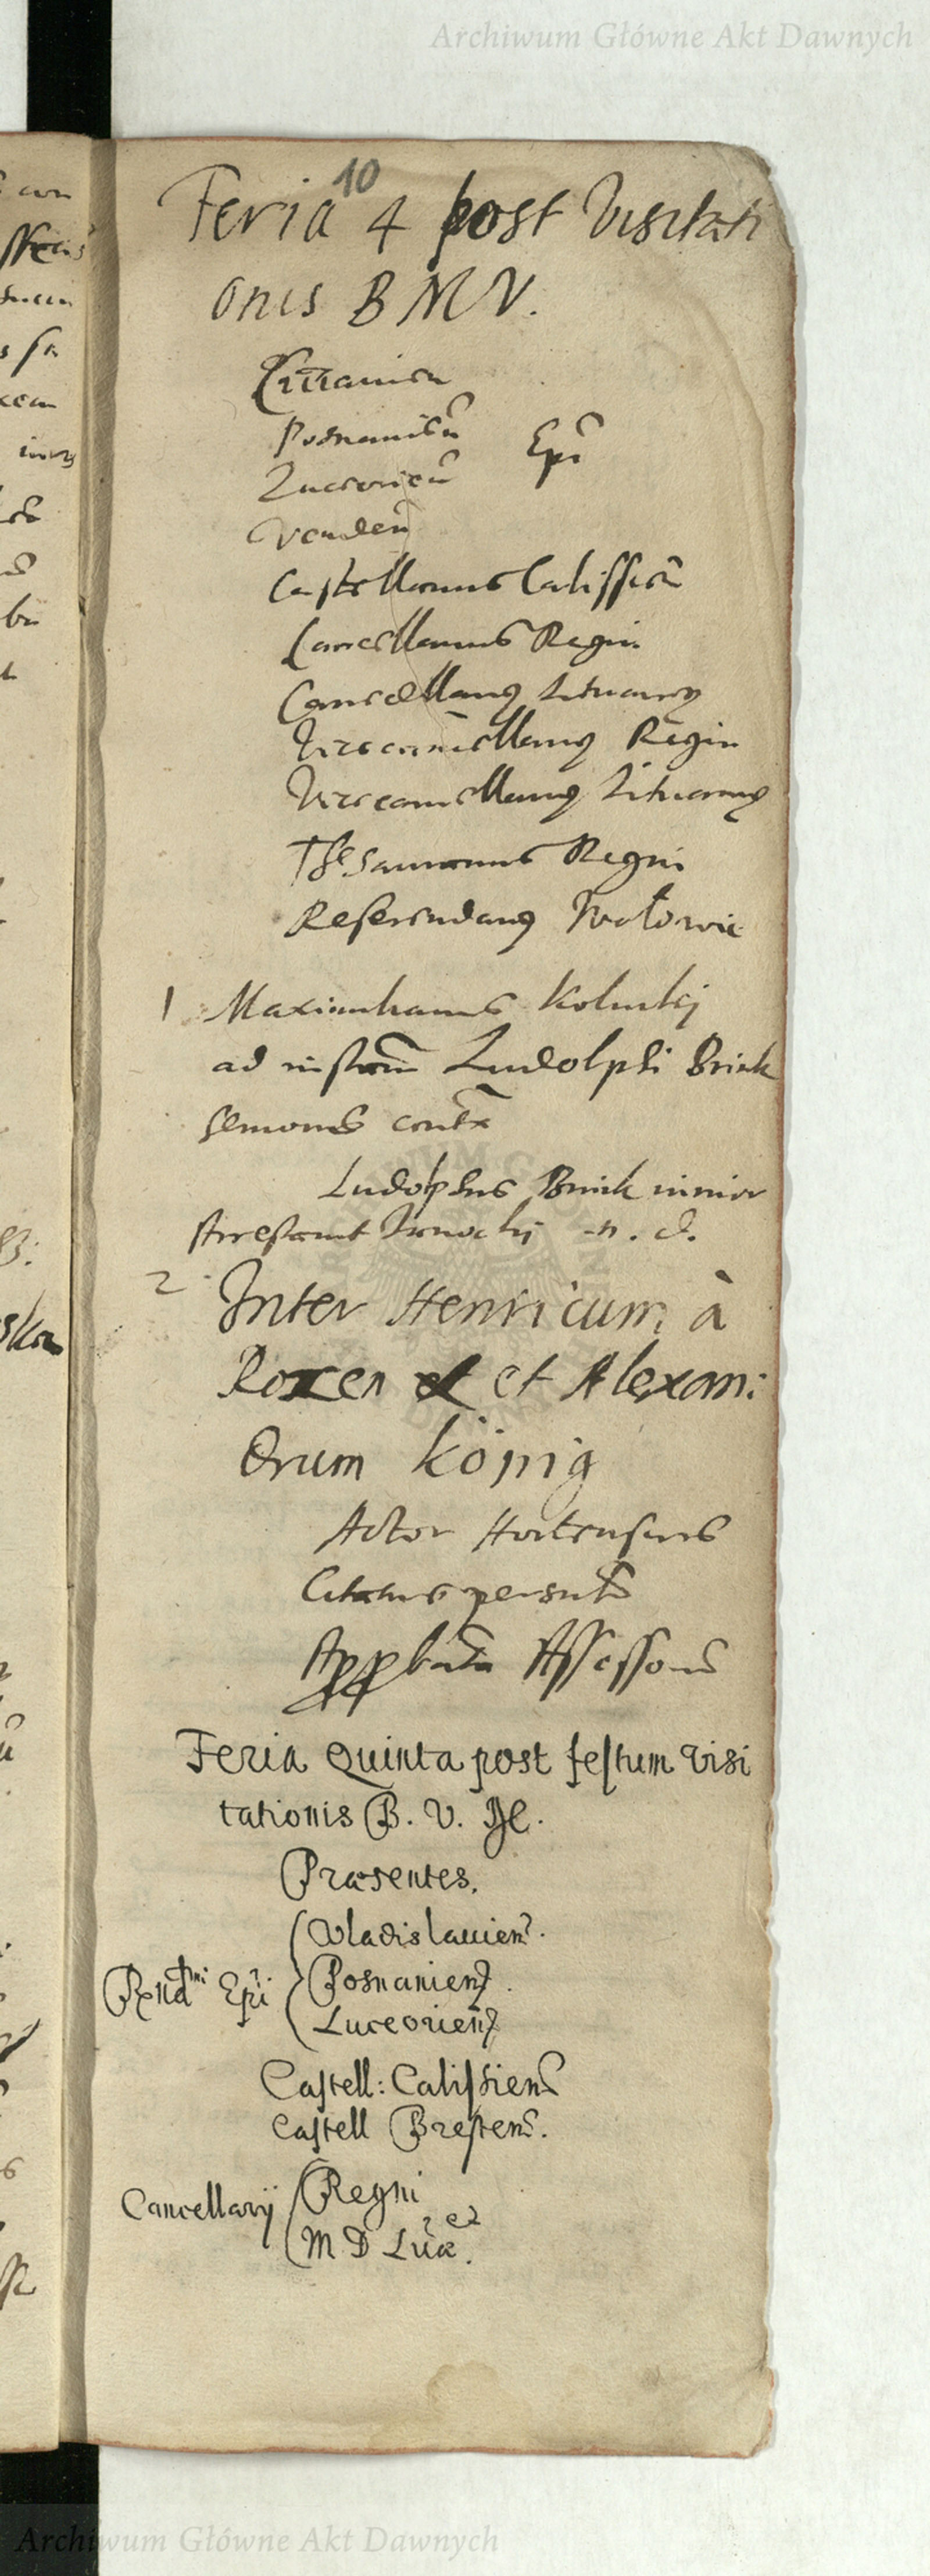 Archiwum Główne Akt Dawnych
10
Feria 4 post Visitati
onis B M V.
Posnanien
Epi
Luceorien
Venden
Castellanus Calissien
Cancellarius Regni
Cancellarius Lituaniae
Vicecancellarius Regni
Vicecancellarius Lituaniae
Thesaurarius Regni
Referendarius Wołowic
1 Maximilianus
ad instam Ludolphi Brink
senioris contra
Ludolphus Brink iunior
n. d.
2 Inter Henricum à
Rozen et Alexan:
drum König
Actor Hortensius
Citatus
Assessor
Feria Quinta post festum Visi
tationis B. V. M.
Præsentes.
Vladislauien.
Rndmi Epi Posnanien.
Luceorien
Castell: Calissien
Castell Bresten.
Cancellarij Regni
M D Lit.
Archiwum Główne Akt Dawnych